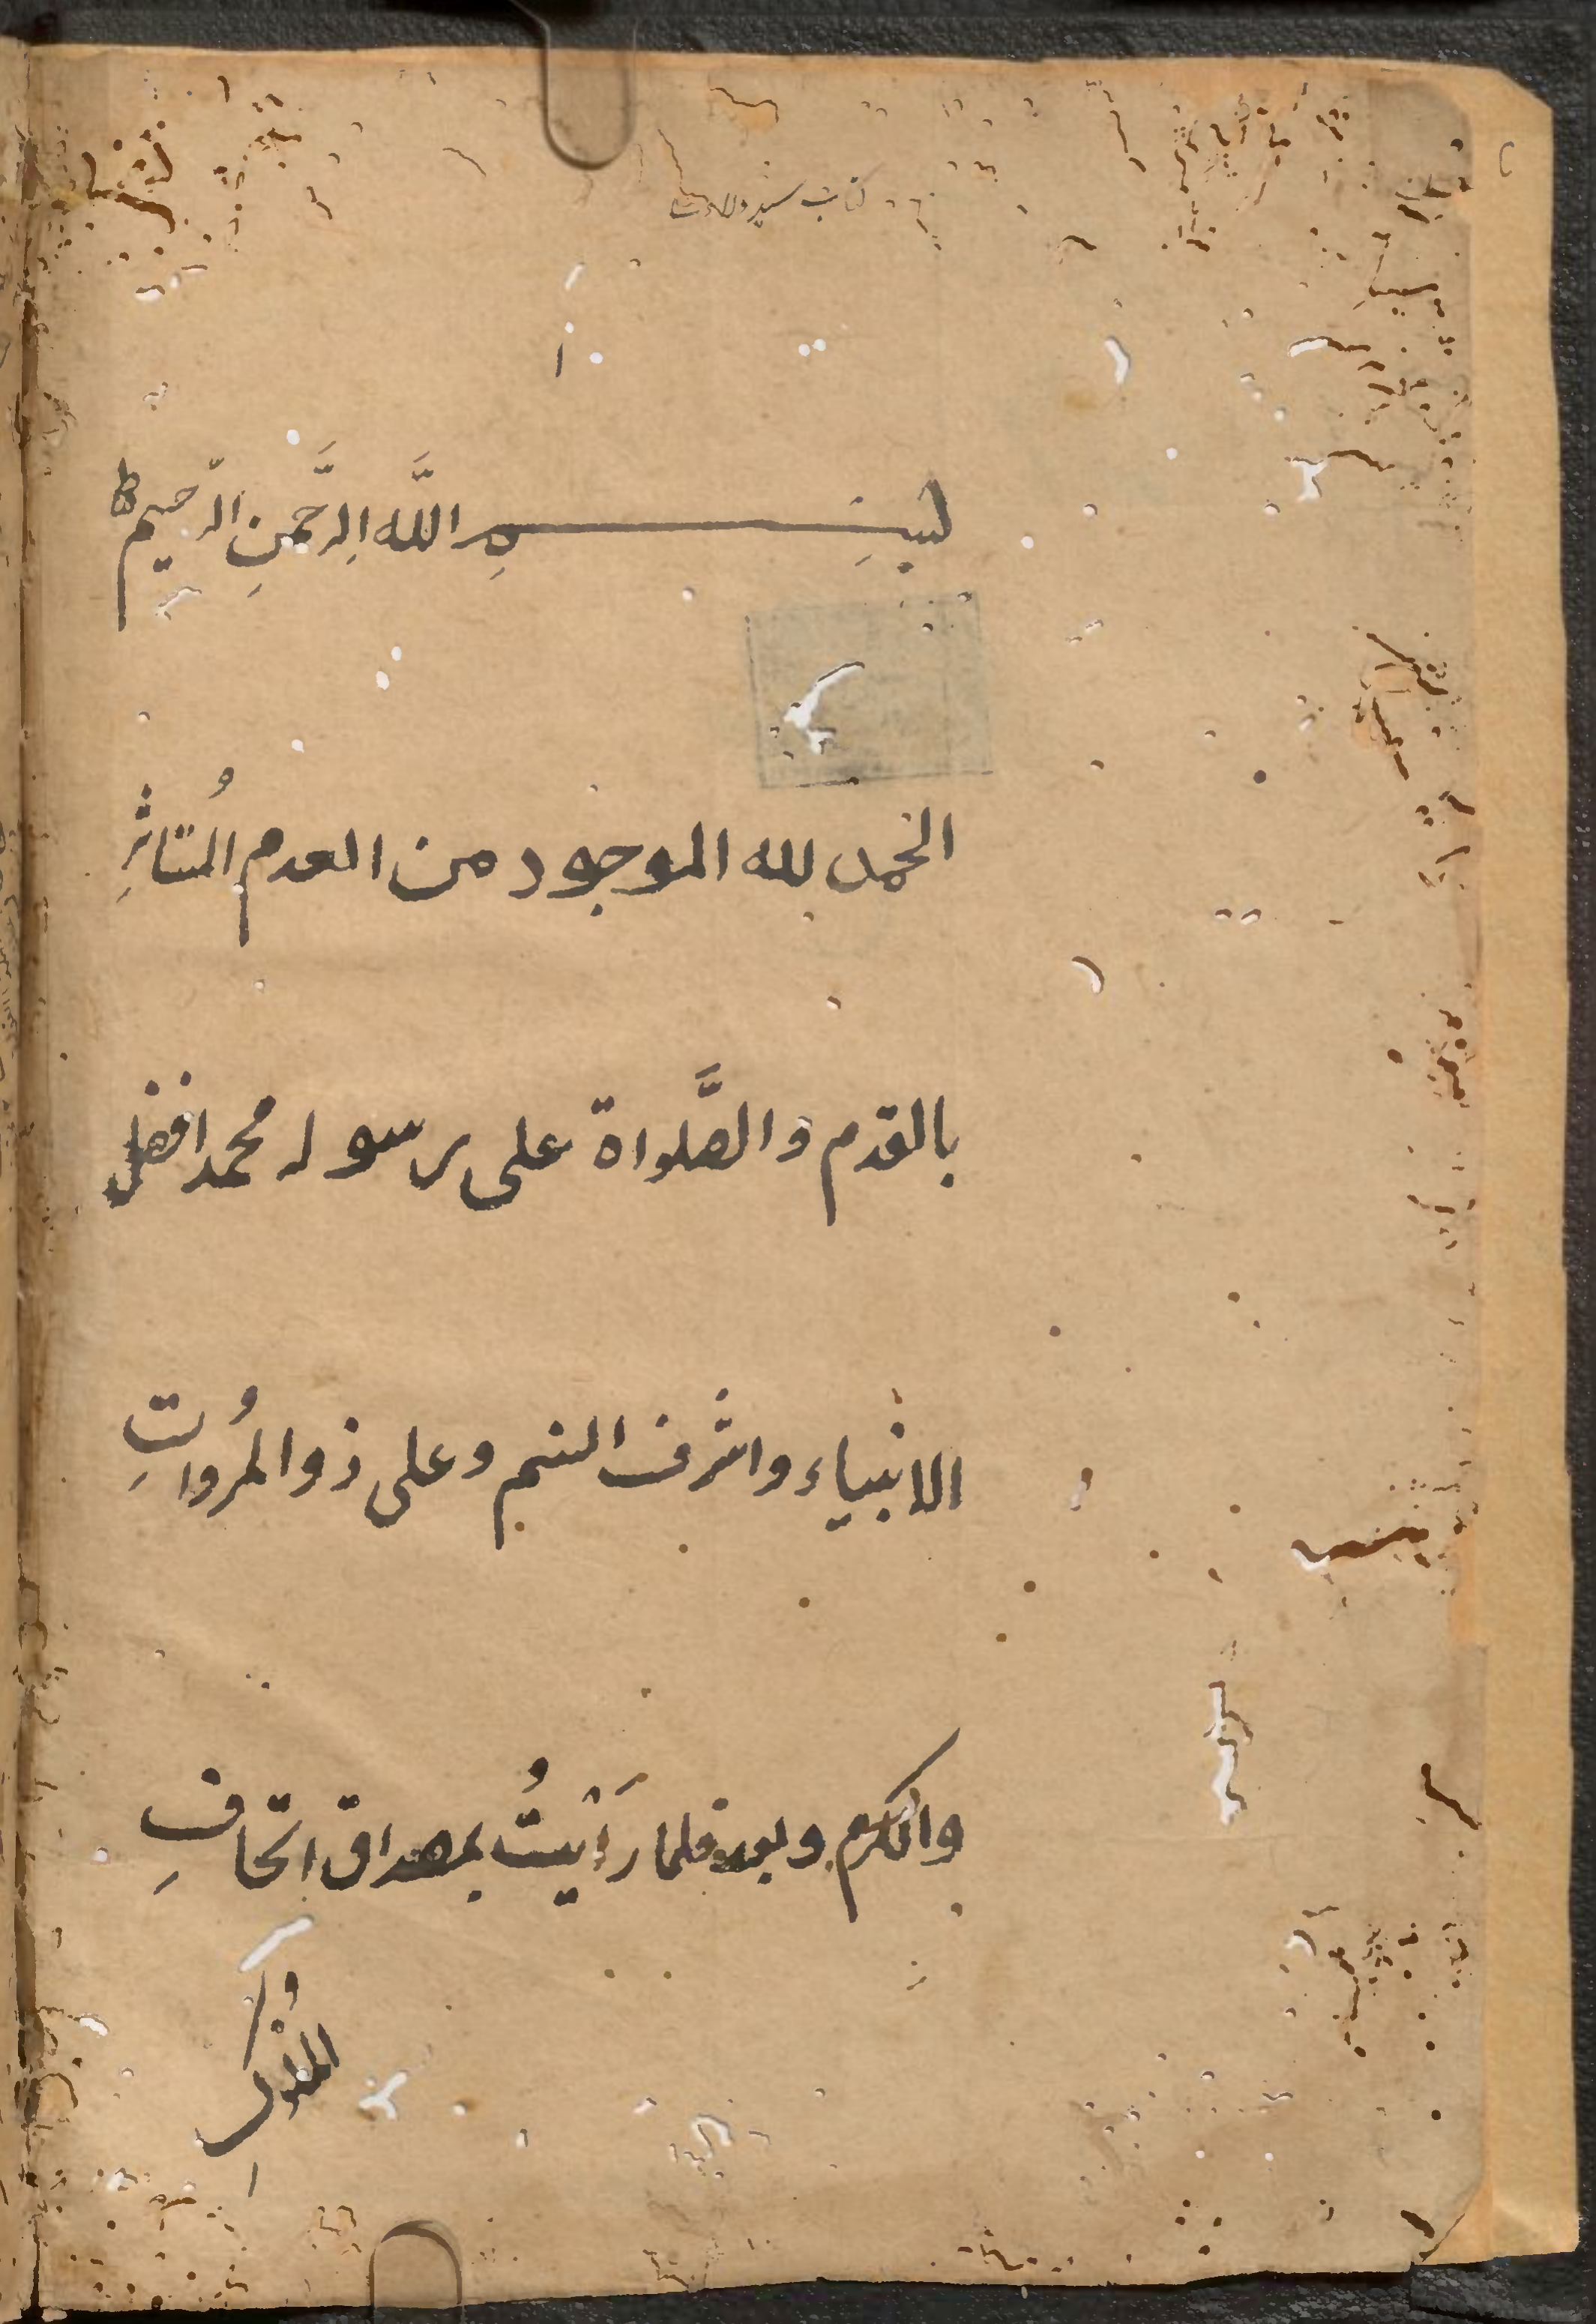 كتاب
بِسْــــــمِ اللَّه الرَّحْمنِ الرّحيم ط
الحمد لله الموجود من العدم المُتاثرِ
بالقدم والصَّلواة على رسوله محمد افضل
الانبياء واشرف النسم وعلى ذو المُرواتِ
والكرم وبعد فلما رَأيتُ بمصداق اتحافِ
المُلوكِ